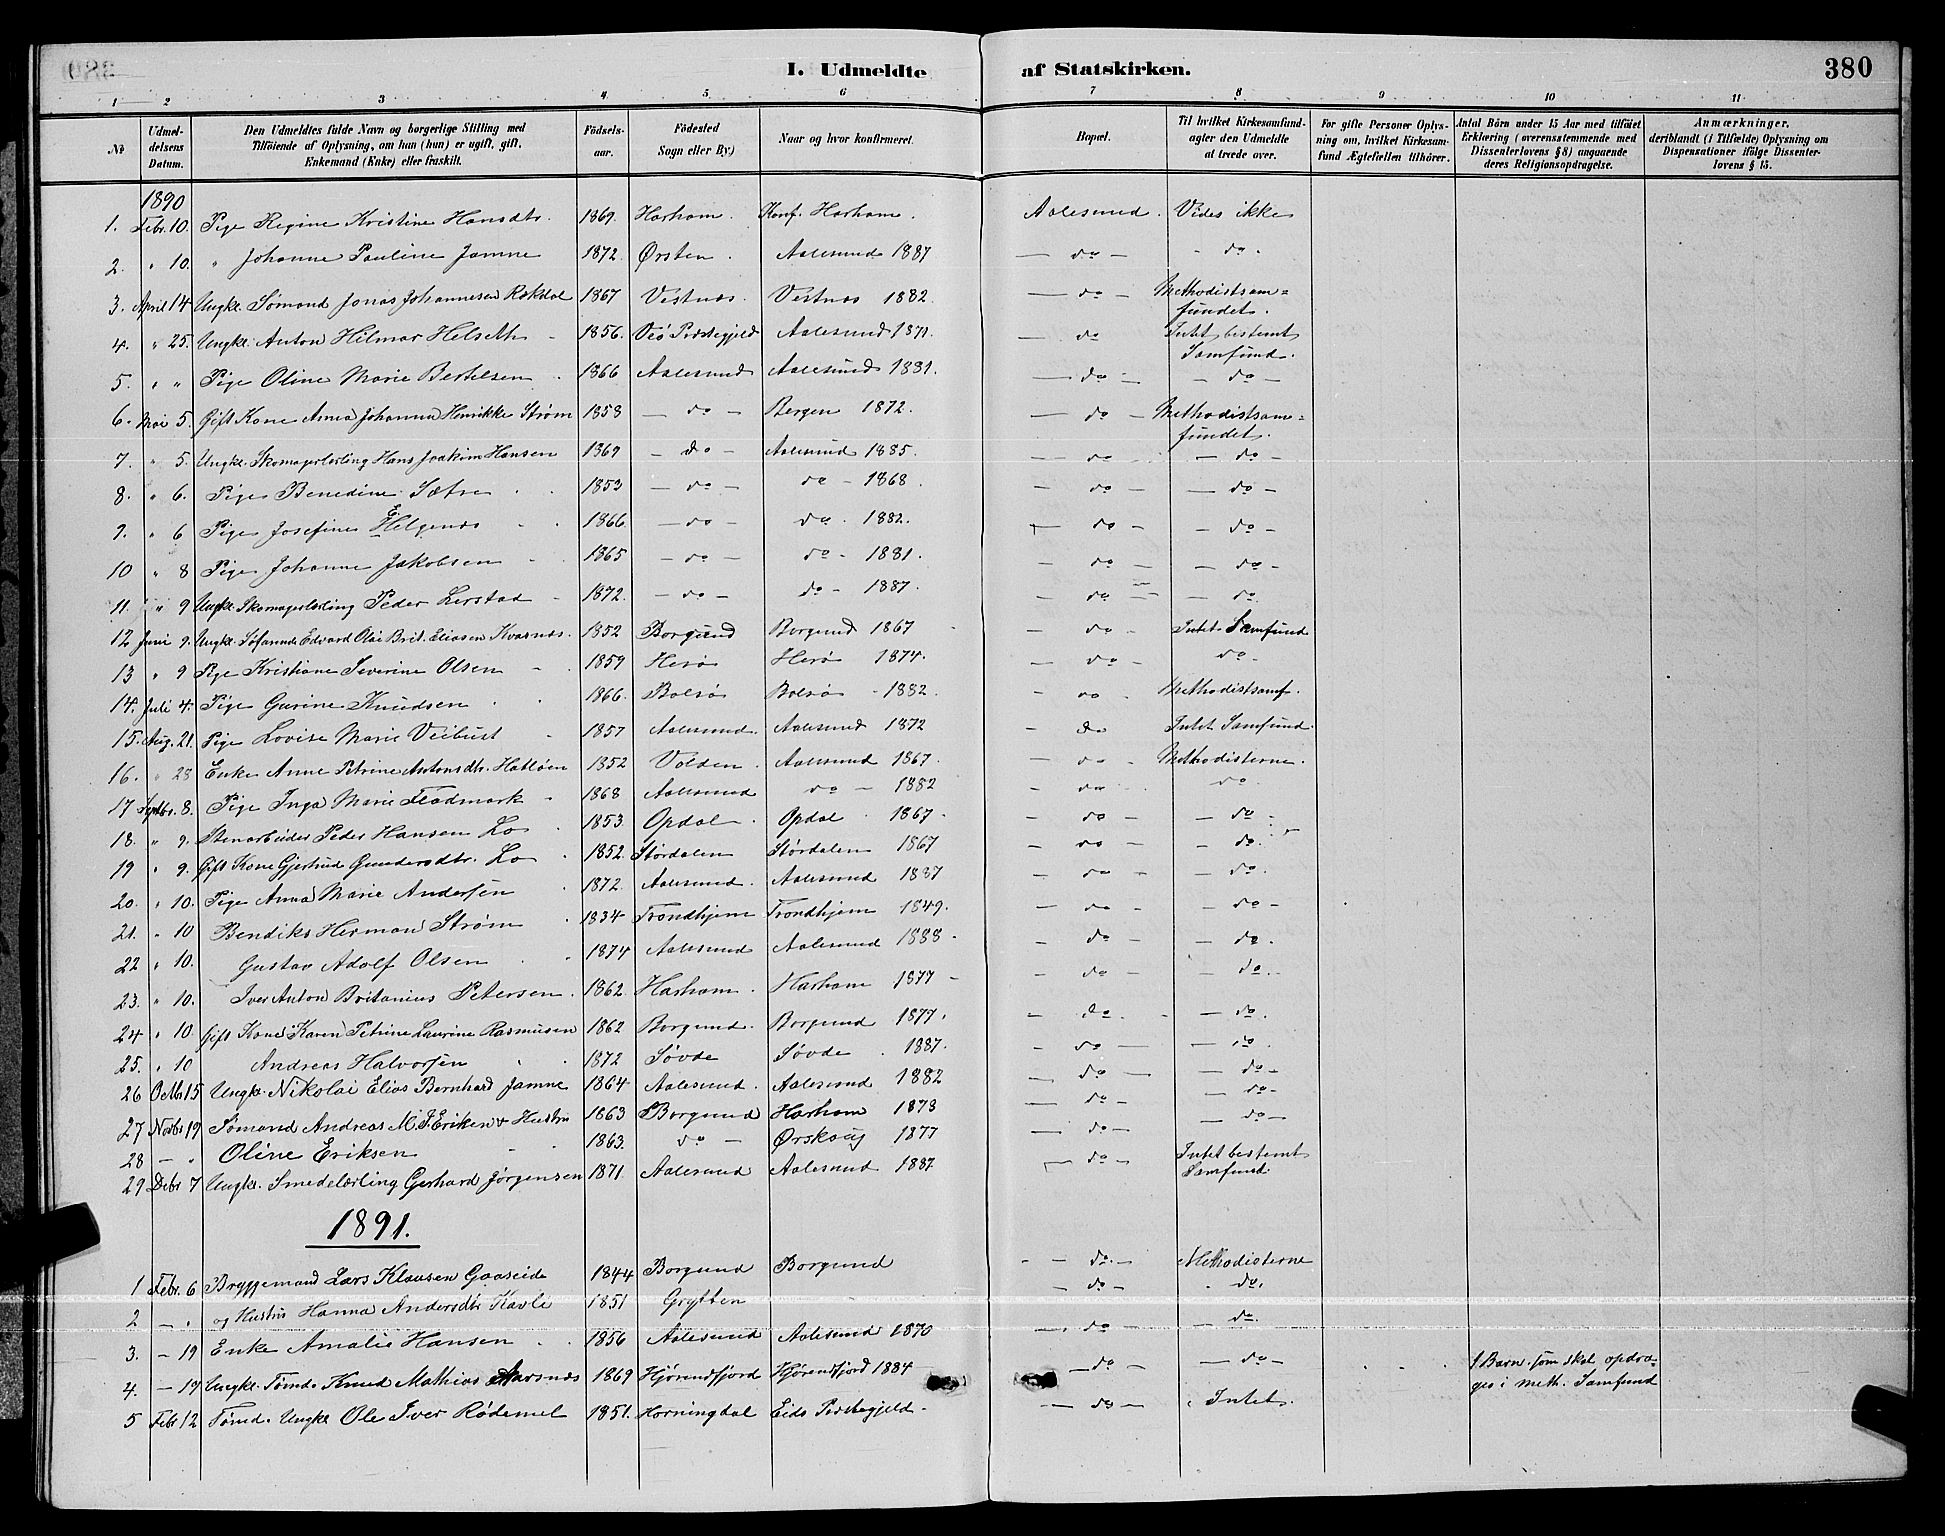 I. Udmeldte af Statskirken. 380
1 2 3 4 5 6 7 8 9 10 11
№ | Udmeldelsens Datum. | Den Udmeldtes fulde Navn og borgerlige Stilling med Tilföiende af Oplysning, om han (hun) er ugift, gift, Enkemand (Enke) eller fraskilt. | Födselsaar. | Födested Sogn eller By) | Naar og hvor konfirmeret. | Bopæl. | Til hvilket Kirkesamfund agter den Udmeldte at træde over. | For gifte Personer Oplysning om, hvilket Kirkesamfund Ægtefællen tilhörer. | Antal Börn under 15 Aar med tilföiet Erklæring (overensstemmende med Dissenterlovens § 8) angaaende deres Religionsopdragelse. | Anmærkninger, deriblandt (i Tilfælde) Oplysning om Dispensationer ifölge Dissenterlovens § 15.
1890
1. Febr. 10. Pige Regine Kristine Hansdtr. 1869. Harham. Konf. Harham. Aalesund. Vides ikke
2. " 10. " Johanne Pauline Jamne 1872. Ørsten. Aalesund 1887 — do — - do -
3. April 14 Ungkl. Sømand Jonas Johannesen Rekdal 1867 Vestnæs. Vestnæs 1882. — do — Methodistsamfundet.
4. " 25. Ungkl. Anton Hilmar Helseth 1856. Veö Præstegjeld Aalesund 1871. — do Intet bestemt Samfund.
5. " " Pige Oline Marie Bertelsen 1866 Aalesund Aalesund 1881. — do — — do —
6. Mai 5. Gift Kone Anna Johanna Henrikke Strøm 1858 — do — Bergen 1872. — do — Methodistsamfundet.
7. " 5. Ungkl. Skomagerlærling Hans Joakim Hansen 1869 — do — Aalesund 1885. — do — — do —
8. " 6. Pige Benedine Sætre 1853 — do — do — 1868. — do — — do —
9. " 6 Pige Josefine E. Helgenæs 1866. — do — do. 1882. — do — — do —
10 " 8 Pige Johanne Jakobsen 1865 — do — do - 1881. — do — — do —
11. " 9 Ungkl. Skomagerlærling Peder Lerstad 1872. — do — do - 1887. — do — — do.
12 Juni 9. Ungkl. Edvard Olai Brit. Eliasen Kvasnes. 1852 Borgund Borgund 1867 — do - Intet Samfund
13 " 9 Pige Kristiane Severine Olsen 1859 Herö Herö 1874. — do — do -
14. Juli 4. Pige Gurine Knudsen 1866. Bolsö Bolsö - 1882. - do - Methodistsamf.
15. Aug. 21. Pige Lovise Marie Veibust 1857 Aalesund. Aalesund 1872 - do Intet Samfund.
16. " 28 Enke Anne Petrine Antonsdtr. Hatløen 1852 Volden. Aalesund 1867. - do - Methodisterne.
17 Septbr. 8. Pige Inga Marie Flødmark 1868 Aalesund do — 1882 - do do.
18. " 9. Stenarbeider Peder Hansen Lo 1853. Opdal. Opdal 1867. - do — — do -
19 " 9. Gift Kone Gjertrud Gundersdtr. Lo 1852. Størdalen Størdalen 1867 - do — - do.
20. " 10. Pige Anna Marie Andersen 1872. Aalesund. Aalesund 1887 - do — - do.
21. " 10 Bendiks Herman Strøm 1834 Trondhjem Trondhjem 1849. — do — — do -
22 " 10. Gustav Adolf Olsen 1874 Aalesund Aalesund 1888 - do — — do.
23. " 10. Iver Anton Britanius Petersen. 1862. Harham. Harham 1877 - do — — do.
24 " 10 Gift Kone Karen Petrine Laurine Rasmusen 1862 Borgund. Borgund 1877. - do. - — do.
25. " 10 Andreas Halvorsen 1872 Søvde Søvde. 1887. - do — — do.
26 Oktb 15 Ungkl. Nikolai Elias Bernhard Jamne 1864 Aalesund. Aalesund 1882 — do — — do —
27 Novbr 19 Sømand Andreas M. J. Eriksen & Hustru 1863 Borgund Harham 1878 — do — — do -
28 — " Oline Eriksen 1863. do — Ørskoug 1877 — do — — do —
29 Debr 7 Ungkl. Smedelærling Gerhard Jørgensen 1871 Aalesund Aalesund 1887. — do — Intet bestemt Samfund
1891.
1 Febr. 6 Bryggemand Lars Klausen Gaaseide 1844 Borgund Borgund - - do. - Methodisterne
2 — " og Hustru Hanna Andersdtr Kavli 1851 Grytten — do — - do.
3. — 19 Enke Amalie Hansen 1856 Aalesund Aalesund 1870 — do — — do.
4. — 19 Ungkl. Tømd. Knud Mathias Aarsnæs 1869 Hjørendfjord Hjørendfjord 1884 — do — — do — 1 Barn som skal opdrages i meth. Samfund
5 Febr. 12 Tømd. Ungkl Ole Iver Rødemel 1851. Horningdal Eids Præstegjeld. — do — Intet.